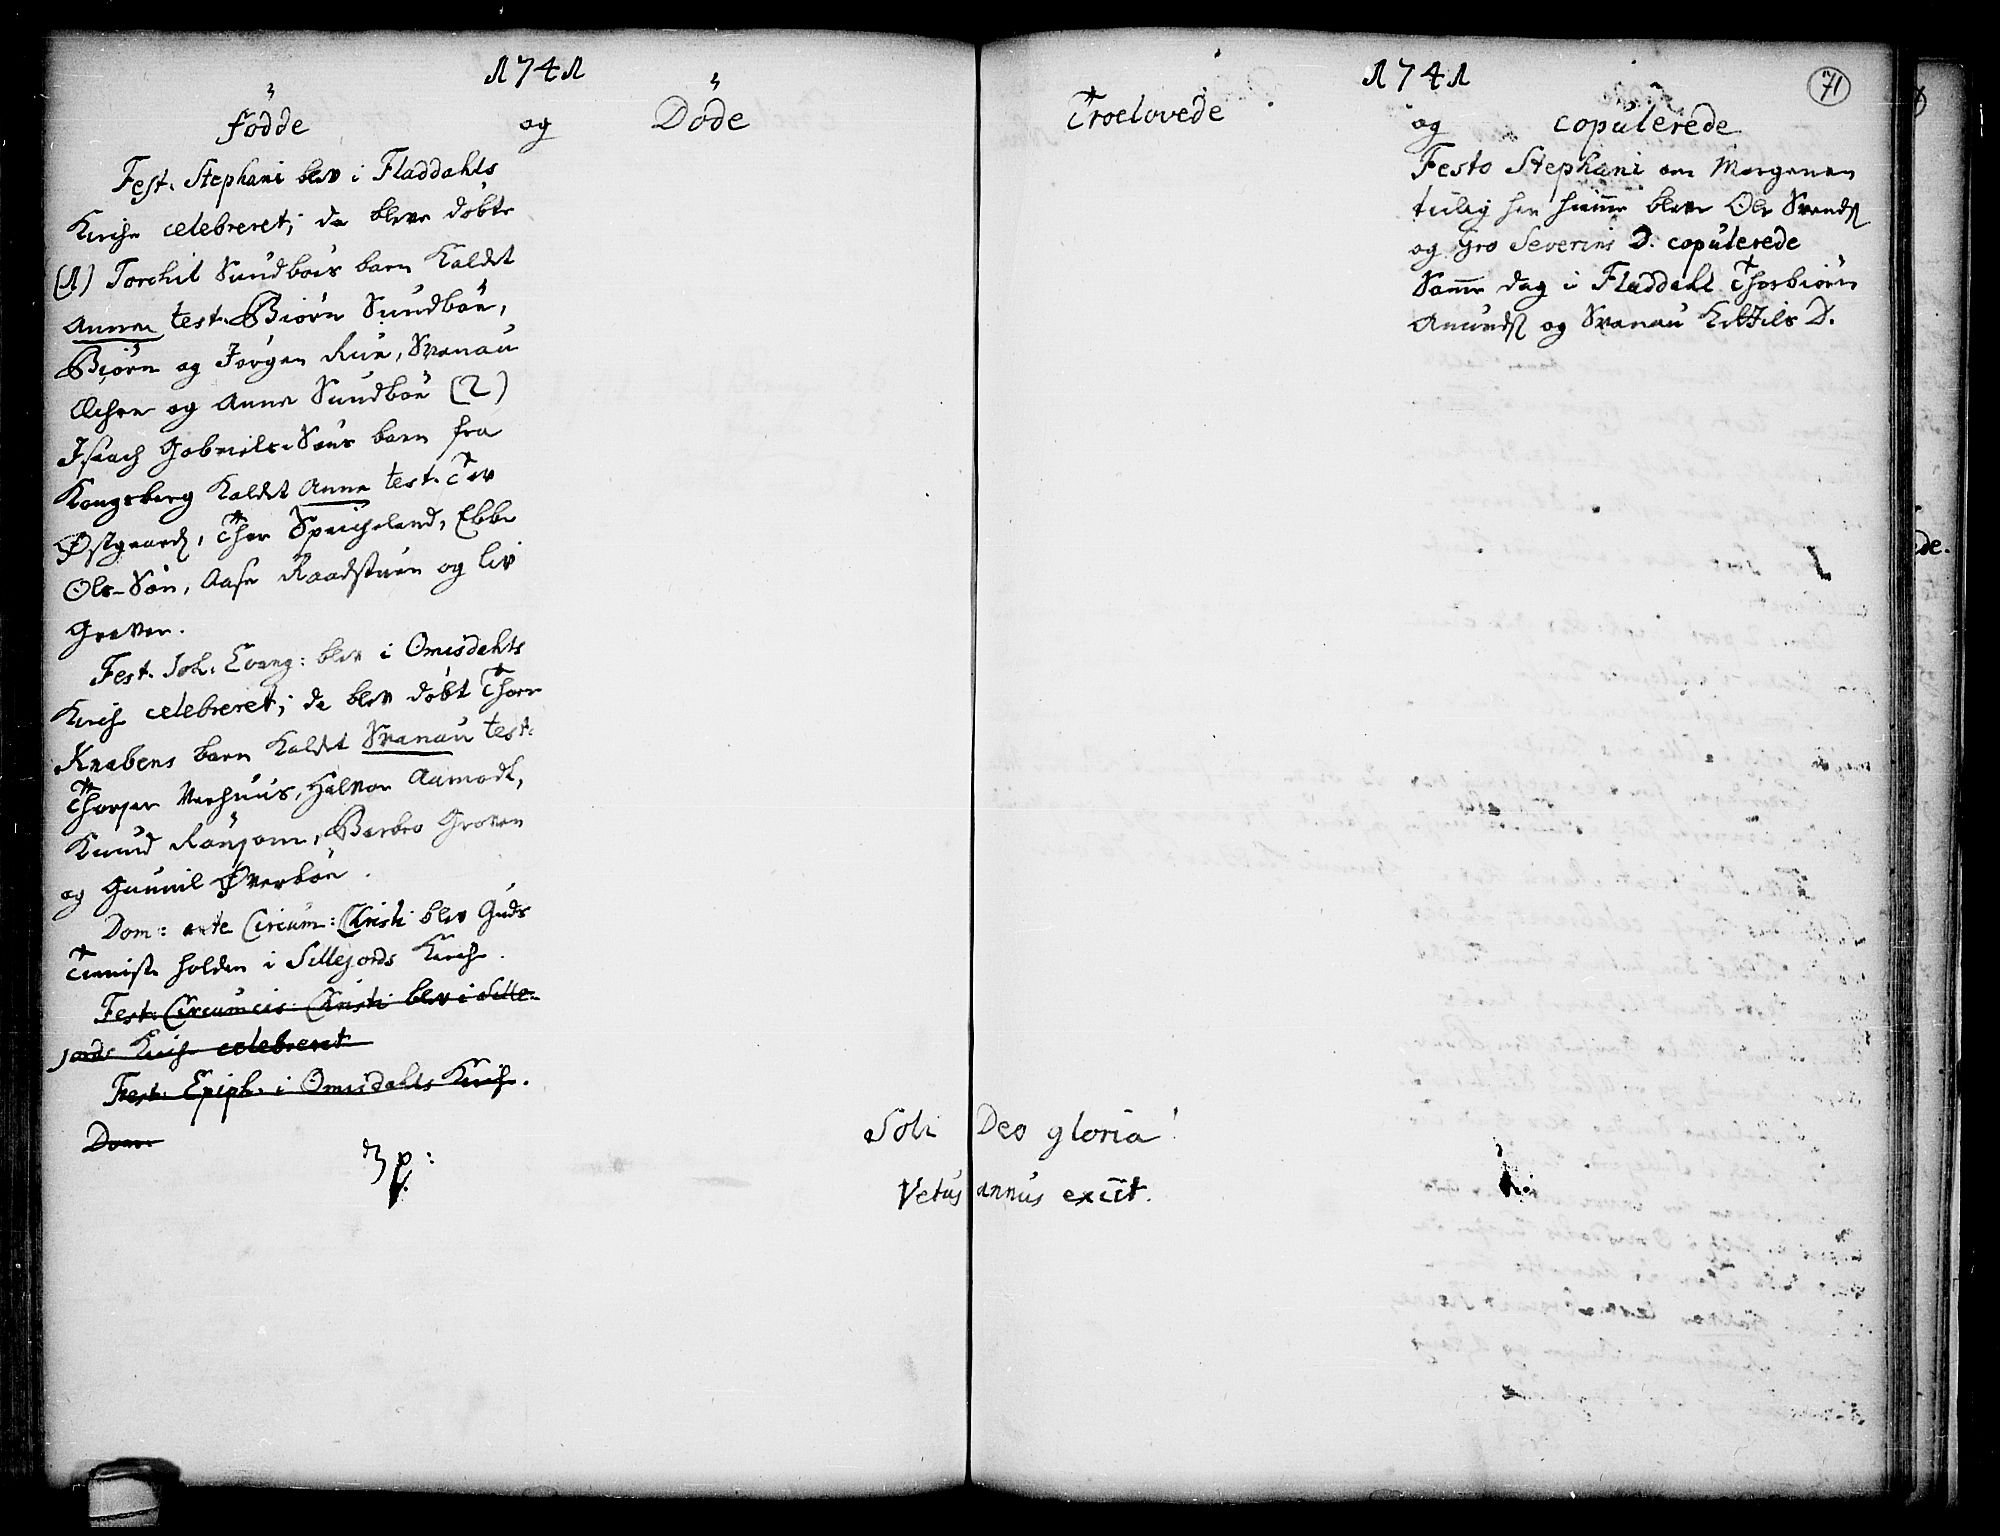 1741
Födde og Döde
Fest. Stephani blev i Fladdahls
Kirche celebreret; da bleve döbte
(1) Torchil Sundböes barn kaldet
Anne test. Biörn Sundböe,
Biörn og Jörgen Rue, Svanau
og Anne Sundböe (2)
Isaach Gabriels-Söns barn fra
Kongsberg kaldet Anne test. Tov
Østgaard, Thor Speicheland, Ebbe
Ols-Sön, Aase Raadstuen og Liv
Groven.
Fest. Joh: Evang: blev i Omisdahls
Kirche celebreret; da blev döbt Thore
Knabens barn kaldet Svanau test.
Thorger Verhuus, Halvor Aamodt,
Knud Rönjom, Barbro Groven
og Gunnil Øverböe.
Dom: ante Circum: Christi blev Guds
Tienniste holden i Sillejords Kirche.
Fest: Circumcis: Christi blev i Sille-
jords Kirche celebreret
Fest: Epiph: i Omisdahls Kirche.
Dom:
1741
71
Troelovede og copulerede
Festo Stephani om Morgenen
tiilig her hieme bleve Ole Svends
og Gro Severins D. copulerede
Same dag i Fladdahl Thorbiörn
Amunds og Svanau Kittils D.
Soli Deo gloria!
Vetus annus exiit.